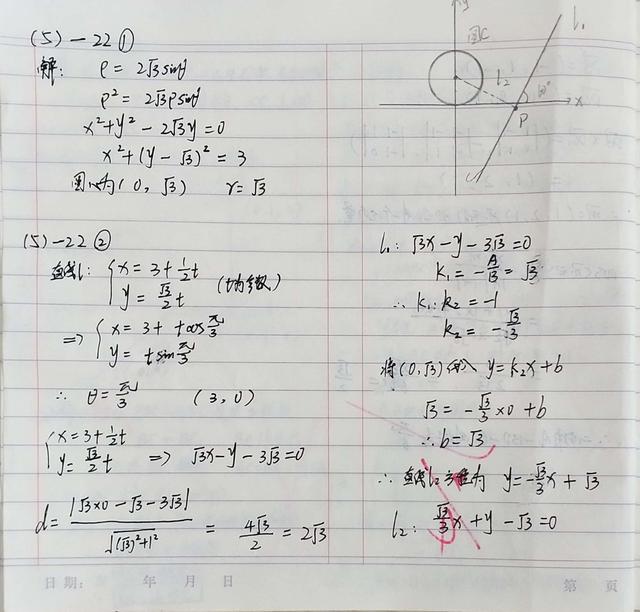 (5)-22①
解: ρ = 2√3sinθ
ρ² = 2√3ρsinθ
x²+y²-2√3y=0
x²+(y-√3)²=3
圆心为(0, √3) r=√3
y
圆C
l₁
l₂
60°
x
P
(5)-22②
直线l: {x=3+½t
y=√3/2 t (t为参数)
⇒ {x=3+tcosπ/3
y=tsinπ/3
∴ θ=π/3 (3,0)
{x=3+½t
y=√3/2 t ⇒ √3x-y-3√3=0
d= |√3×0-√3-3√3| / √((√3)²+1²) = 4√3/2 = 2√3
l₁: √3x-y-3√3=0
k₁=-A/B=√3
∴ k₁·k₂=-1
k₂=-√3/3
将(0,√3)代入 y=k₂x+b
√3=-√3/3×0+b
∴b=√3
∴ 直线l₂方程为 y=-√3/3x+√3
l₂: √3/3x+y-√3=0
日期: 年 月 日
第 页